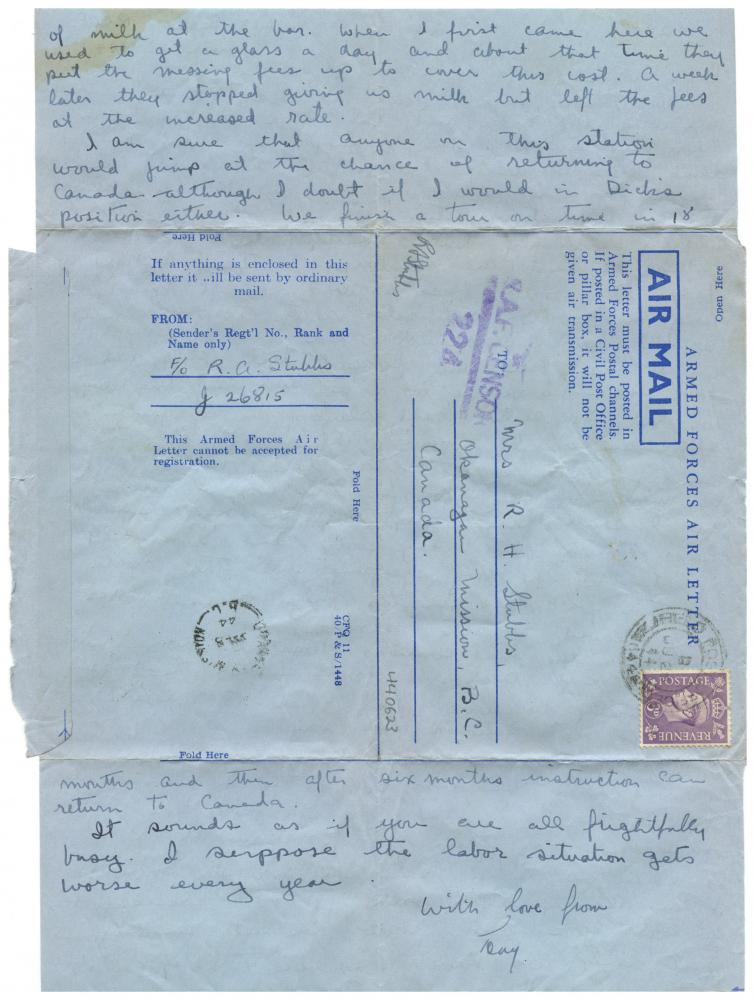 of milk at the bar. When I first came here we
used to get a glass a day and about that time they
put the messing fees up to cover this cost. A week
later they stopped giving us milk but left the fees
at the increased rate.
I am sure that anyone on this station
would jump at the chance of returning to
Canada although I doubt if I would in Dick's
position either. We finish a tour on time in 18
Fold Here
If anything is enclosed in this
letter it ..ill be sent by ordinary
mail.
FROM:
(Sender's Regt'l No., Rank and
Name only)
F/O R. A. Stubbs
J 26815
This Armed Forces Air
Letter cannot be accepted for
registration.
Fold Here
CFQ 11
40 P & S/1448
Open Here
ARMED FORCES AIR LETTER
AIR MAIL
This letter must be posted in
Armed Forces Postal channels.
If posted in a Civil Post Office
or pillar box, it will not be
given air transmission.
R.A.F. BENSON
TO:
Mrs R. H. Stubbs,
Okanagan Mission, B.C.
Canada.
RAStubbs
440623
POSTAGE
REVENUE
Fold Here
months and then after six months instruction can
return to Canada.
It sounds as if you are all frightfully
busy. I serppose the labor situation gets
worse every year.
With love from
Tony